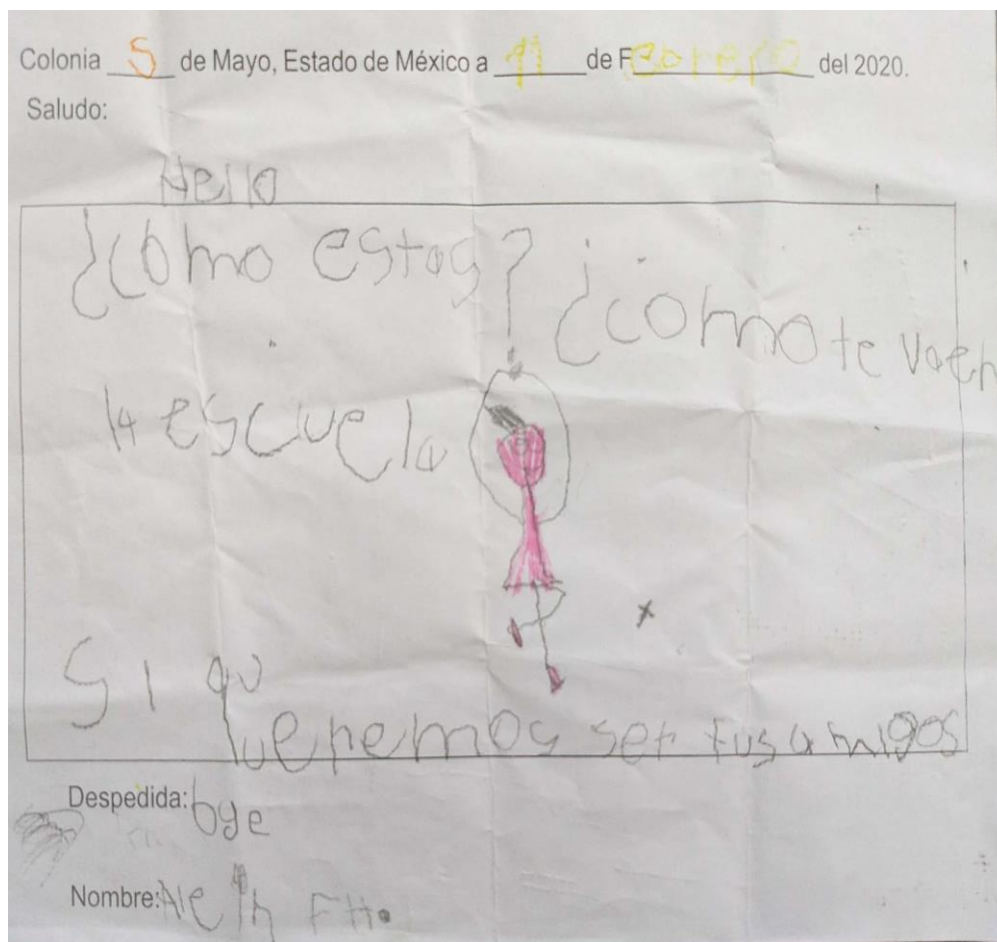 Colonia 5 de Mayo, Estado de México a 11 de Febrero del 2020.
Saludo:
Hello
¿como estas? ¿como te va en
la escuela
Si qu
queremos ser tus amigos
Despedida: bye
Nombre: